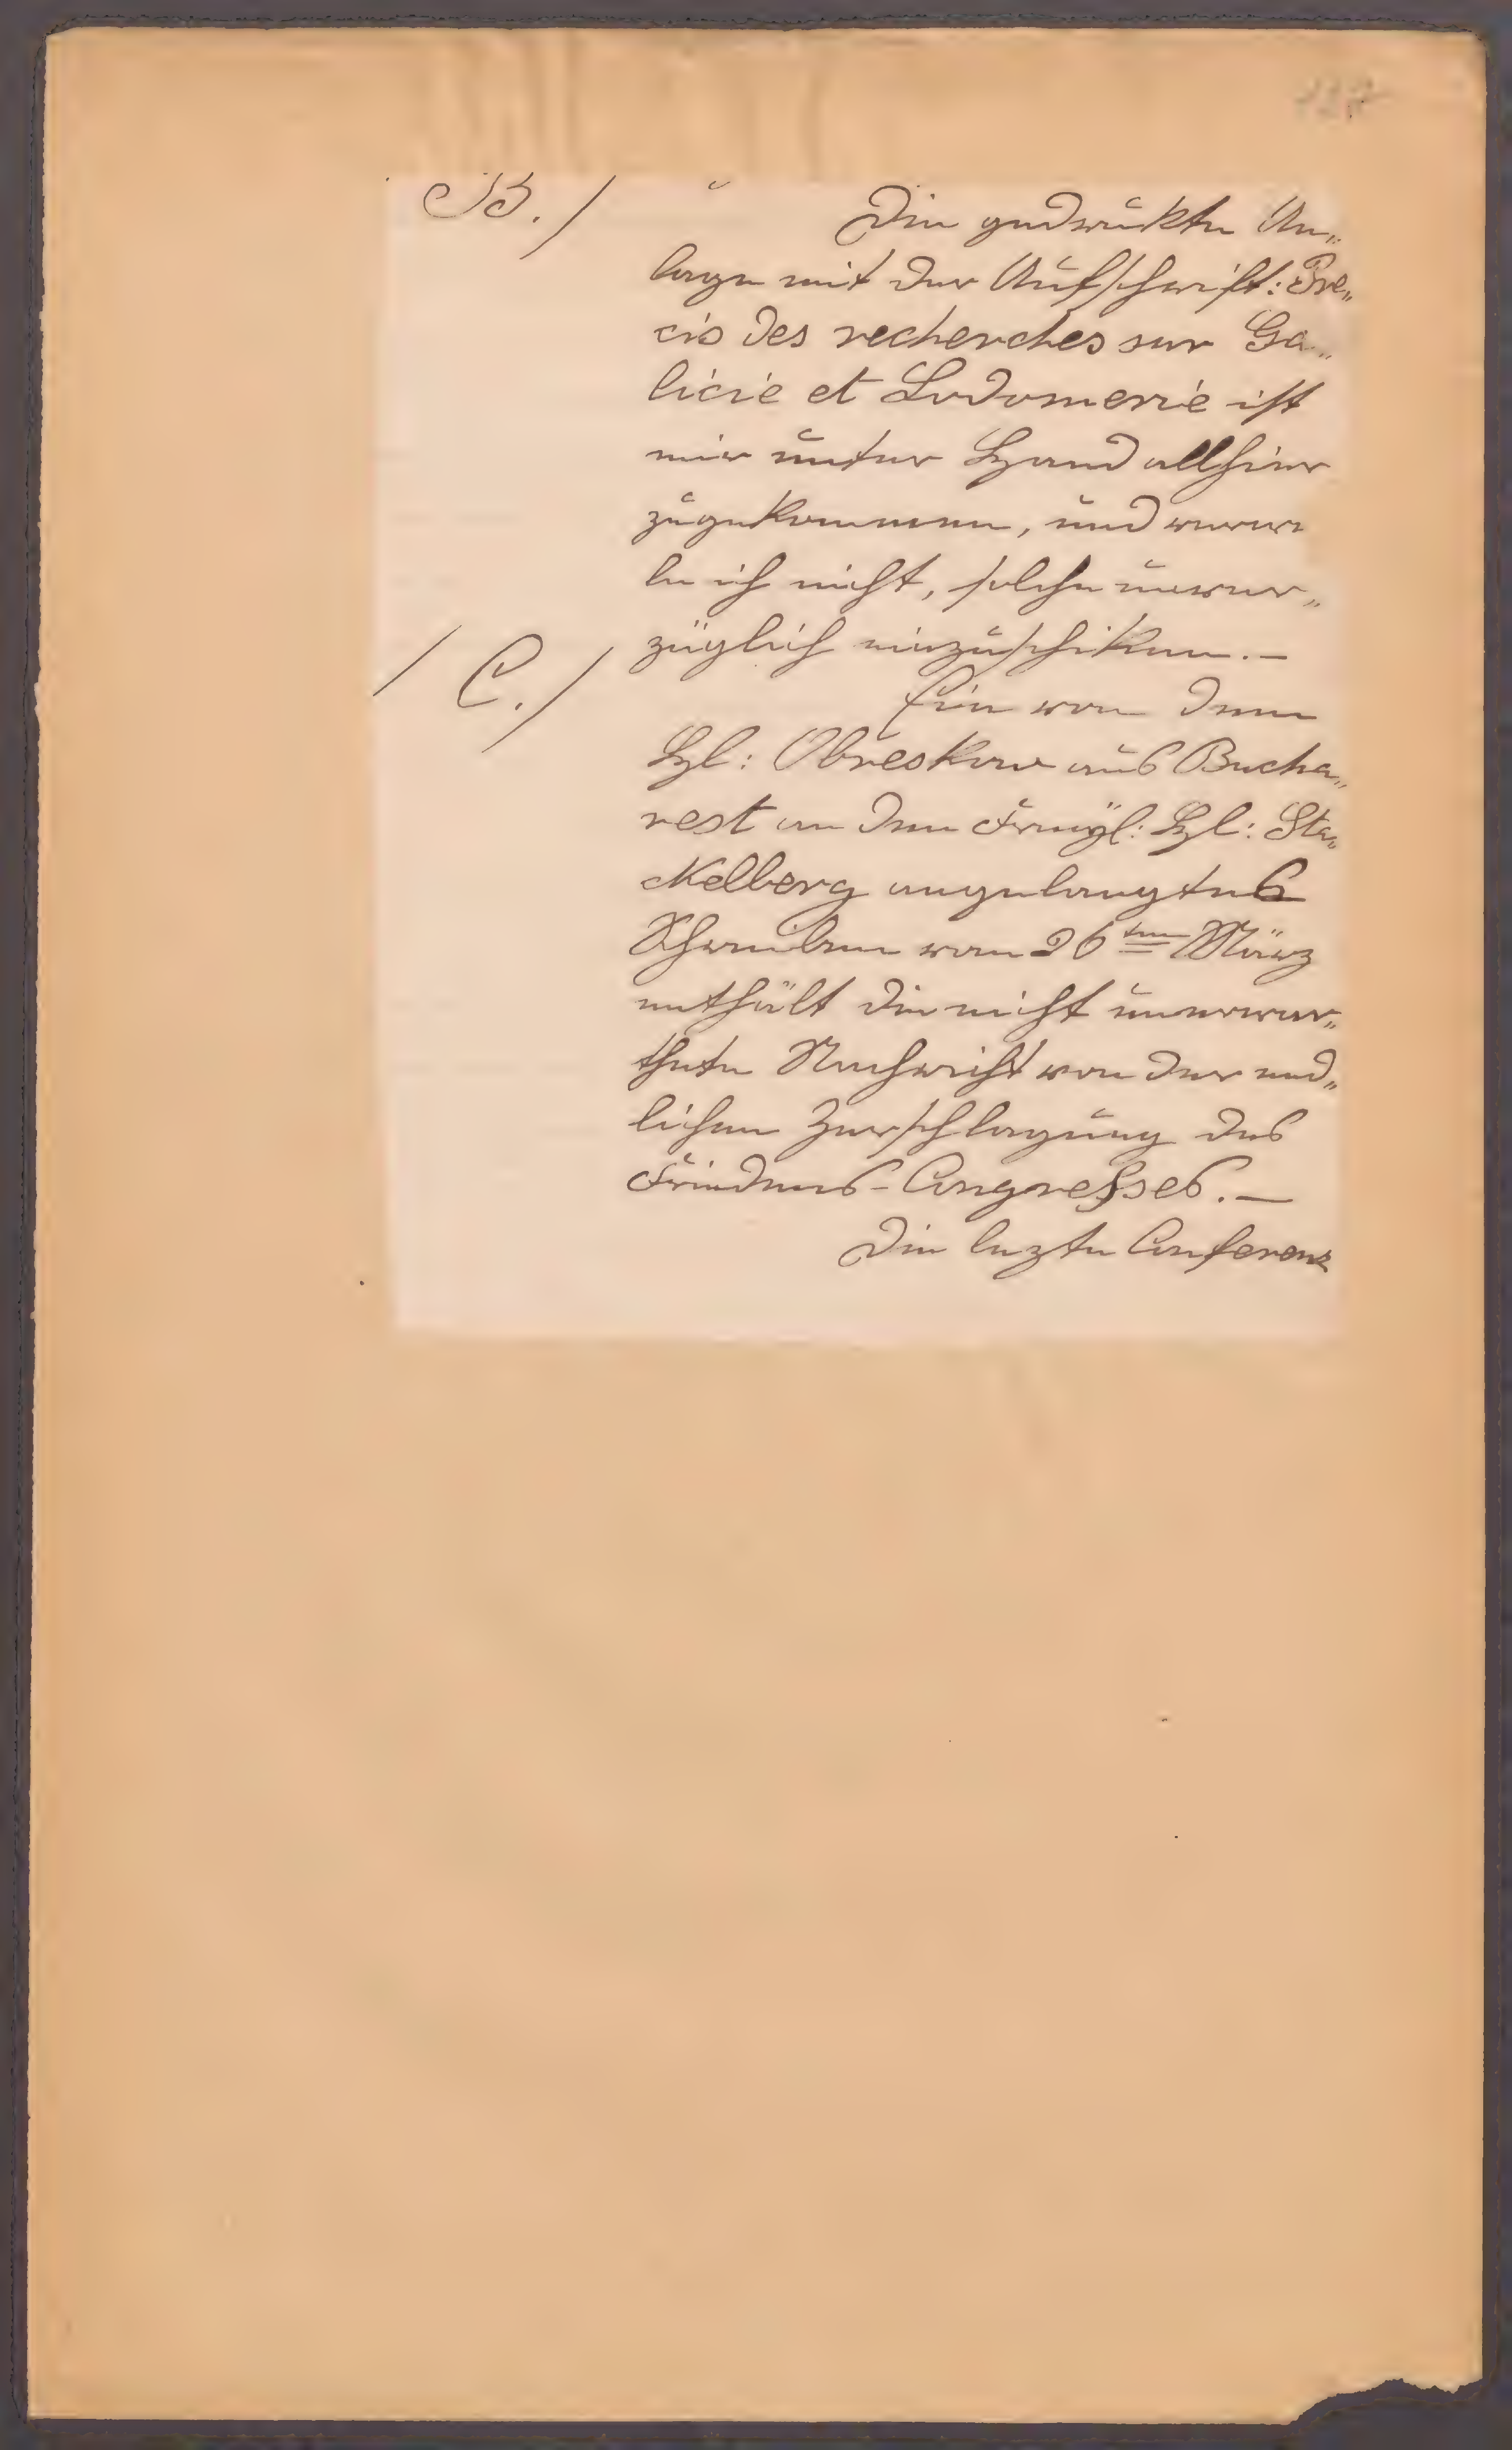 B./
Die gedrukte An„
lage mit der Aufschrift: Pre„
cis des recherches sur Ga„
licie et Lodomerie ist
mir unter Hand allhier
zugekommen, und verwei
le ich nicht, solche unver„
züglich einzuschiken. —
/ C./
Ein von dem
H: Obreskow aus Bucha„
rest an den Freyh: H: Sta„
ckelberg angelangtes
Schreiben vom 26ten März
enthält die nicht unerwar„
thete Nachricht von der end„
lichen Zerschlagung des
Friedens-Congresses. —
Die lezte Conferenz